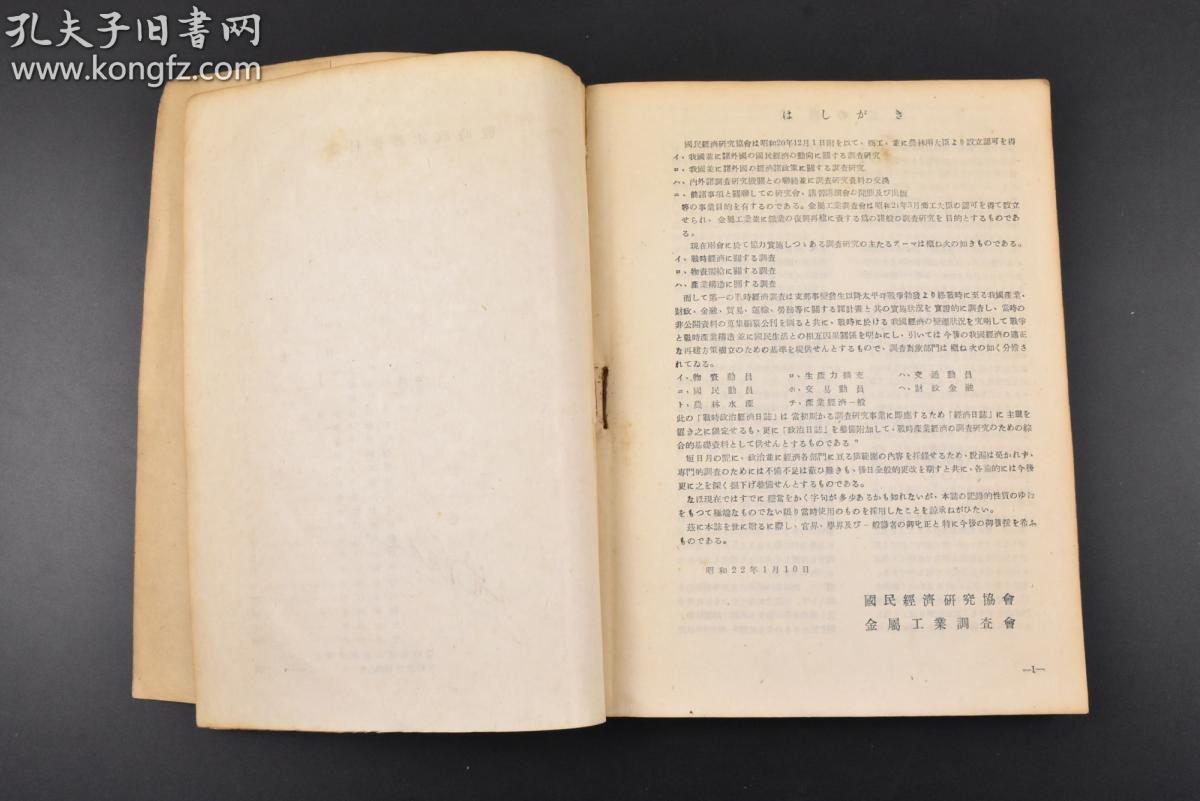 孔夫子旧书网
www.kongfz.com
はしがき
國民經濟研究協會は昭和20年12月1日附を以て、商工、並に農林兩大臣より設立認可を得
イ、我國並に諸外國の國民經濟の動向に關する調査研究
ロ、我國並に諸外國の經濟諸政策に關する調査研究
ハ、內外諸調査研究機關との聯絡並に調査研究資料の交換
ニ、前諸事項と關聯しての研究會、講習講演會の開催及び出版
等の事業目的を有するのである。金屬工業調査會は昭和21年3月商工大臣の認可を得て設立
せられ、金屬工業並に鑛業の復興再建に資する爲の諸般の調査研究を目的とするものであ
る。
現在兩會に於て協力實施しつゝある調査研究の主たるテーマは概ね次の如きものである。
イ、戰時經濟に關する調査
ロ、物資需給に關する調査
ハ、產業構造に關する調査
而して第一の戰時經濟調査は支那事變發生以降太平洋戰爭勃發より終戰時に至る我國產業、
財政、金融、貿易、運輸、勞働等に關する諸計畫と其の實施狀況を實證的に調査し、當時の
非公開資料の蒐集編纂公刊を圖ると共に、戰時に於ける我國經濟の變遷狀況を究明して戰爭
と戰時產業構造並に國民生活との相互因果關係を明かにし、引いては今後の我國經濟の適正
な再建方策樹立のための基準を提供せんとするもので、調査對象部門は概ね次の如く分擔さ
れてゐる。
イ、物資動員 ロ、生產力擴充 ハ、交通動員
ニ、國民動員 ホ、交易動員 ヘ、財政金融
ト、農林水產 チ、產業經濟一般
此の「戰時政治經濟日誌」は當初期かる調査研究事業に卽應するため「經濟日誌」に主眼を
置き之に限定せるも、更に「政治日誌」を整備附加して、戰時產業經濟の調査研究のための綜
合的基礎資料として供せんとするものである。
短日月の間に、政治並に經濟各部門に亙る廣範圍の內容を採錄せるため、脫漏は免かれず、
專門的調査のためには不備不足は蔽ひ難きも、後日全般的更改を期すと共に、各論的には今後
更に之を深く掘下げ整備せんとするものである。
なほ現在ではすでに穩當をかく字句が多少あるかも知れないが、本誌の記錄的性質のゆゑ
をもつて極端なものでない限り當時使用のものを採用したことを諒承ねがひたい。
茲に本誌を世に贈るに際し、官界、學界及び一般識者の御叱正と特に今後の御鞭撻を希ふ
ものである。
昭和22年1月10日
國民經濟研究協會
金屬工業調査會
—1—